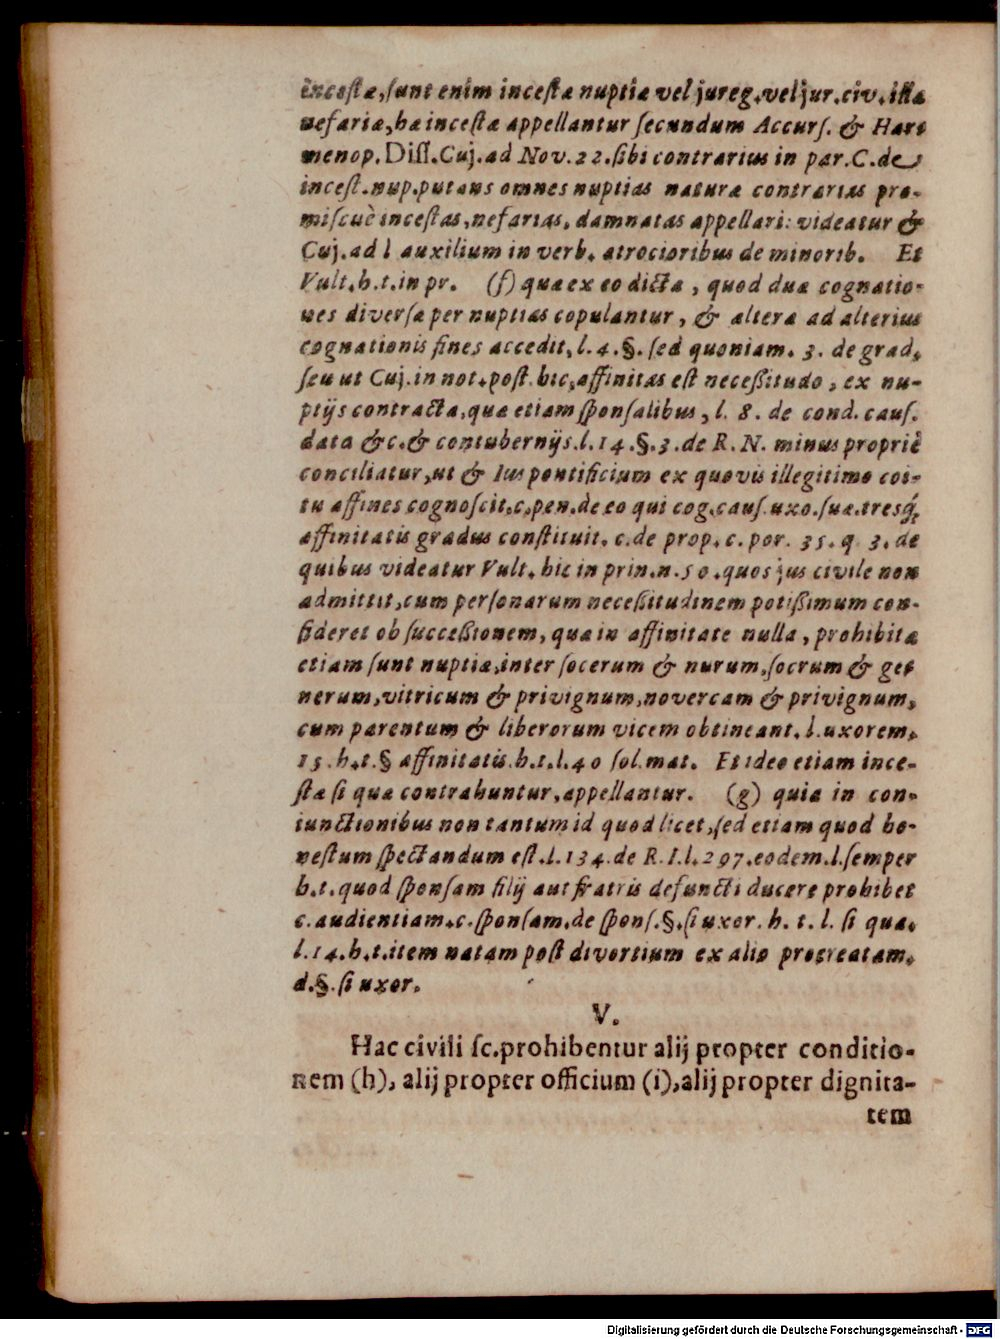 incestæ, ſunt enim incestæ nuptiæ vel jureg. vel jur. civ. illa
nefariæ, hæ incestæ appellantur ſecundum Accurſ. & Har-
menop. Diſſ. Cuj. ad Nov. 22. ſibi contrarius in par. C. de
inceſt. nup. putans omnes nuptias naturæ contrarias pro-
miſcuè incestas, nefarias, damnatas appellari: videatur &
Cuj. ad l auxilium in verb. atrocioribus de minorib. Et
Vult. h. t. in pr. (f) quæ ex eo dicta, quod duæ cognatio-
nes diverſæ per nuptias copulantur, & altera ad alterius
cognationis fines accedit, l. 4. §. ſed quoniam. 3. de grad.
ſeu ut Cuj. in not. poſt. hic, affinitas eſt neceßitudo, ex nu-
ptijs contracta, quæ etiam ſponſalibus, l. 8. de cond. cauſ.
data &c. & contubernijs. l. 14. §. 3. de R. N. minus propriè
conciliatur, ut & Ius pontificium ex quovis illegitimo coi-
tu affines cognoſcit, c. pen. de eo qui cog. cauſ. uxo. ſuæ. tresq́;
affinitatis gradus conſtituit. c. de prop. c. por. 35. q. 3. de
quibus videatur Vult. hic in prin. n. 50. quos jus civile non
admittit, cum perſonarum neceßitudinem potißimum con-
ſideret ob ſucceßionem, quæ in affinitate nulla, prohibitæ
etiam ſunt nuptiæ, inter ſocerum & nurum, ſocrum & ge-
nerum, vitricum & privignum, novercam & privignum,
cum parentum & liberorum vicem obtineant. l. uxorem.
15. h. t. § affinitatis. h. t. l. 40 ſol. mat. Et ideo etiam ince-
ſtæ ſi quæ contrahuntur, appellantur. (g) quia in con-
iunctionibus non tantum id quod licet, ſed etiam quod ho-
neſtum ſpectandum eſt. l. 134. de R. I. l. 297. eodem. l. ſemper
h. t. quod ſponſam filij aut fratris defuncti ducere prohibet
c. audientiam. c. ſponſam. de ſponſ. §. ſi uxor. h. t. l. ſi qua.
l. 14. h. t. item natam poſt divortium ex alio procreatam.
d. §. ſi uxor.
V.
Hac civili ſc. prohibentur alij propter conditio-
nem (h), alij propter officium (i), alij propter dignita-
tem
Digitalisierung gefördert durch die Deutsche Forschungsgemeinschaft - DFG